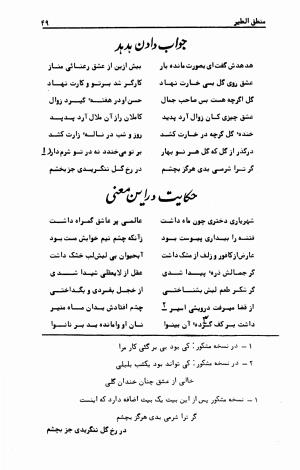 منطق الطیر
۴۹
جواب دادن بدبد
هدهدش گفت ای بصورت مانده باز
بیش ازین از عشق رعنائی مناز
عشق روی گل بسی خارت نهاد
کارگر شد بر تو و کارت نهاد
گل اگرچه هست بس صاحب جمال
حسن او در هفته‌ گیرد زوال
عشق چیزی کان زوال آرد پدید
کاملان راز آن ملال آرد پدید
خنده گل گرچه در کارت کشد
روز و شب در ناله زارت کشد
درگذر از گل که گل هر نو بهار
بر تو می‌خندد نه در تو شرم دار ۱
گر ترا شرمی بدی هرگز بچشم
در رخ گل ننگریدی جز بخشم
حکایت در این معنی
شهریاری دختری چون ماه داشت
عالمی پر عاشق گمراه داشت
فتنه را بیداری پیوست بود
زآنکه چشم نیم خوابش مست بود
عارض از کافور و زلف از مشک داشت
آبحیوان بی لبش لب خشک داشت
گر جمالش ذره پیدا شدی
عقل از لایعقلی شیدا شدی
گر شکر طعم لبش بشناختی
از خجل بفردی و بگداختی
از قضا میرفت درویشی اسیر
چشم افتادش بدان ماه منیر
داشت بر کف گرده آن بینوا
نان او وامانده بد بر نانوا
۱ – در نسخه مذکور: کی بود بی بر گئی کار مرا
۲ – در نسخه مذکور: کی تواند بود یکشب بلبلی
خالی از عشق چنان خندان گلی
۱ – در نسخه مذکور پس از این بیت یک بیت اضافه دارد که اینست
گر ترا شرمی بدی هرگز بچشم
در رخ گل ننگریدی جز بچشم